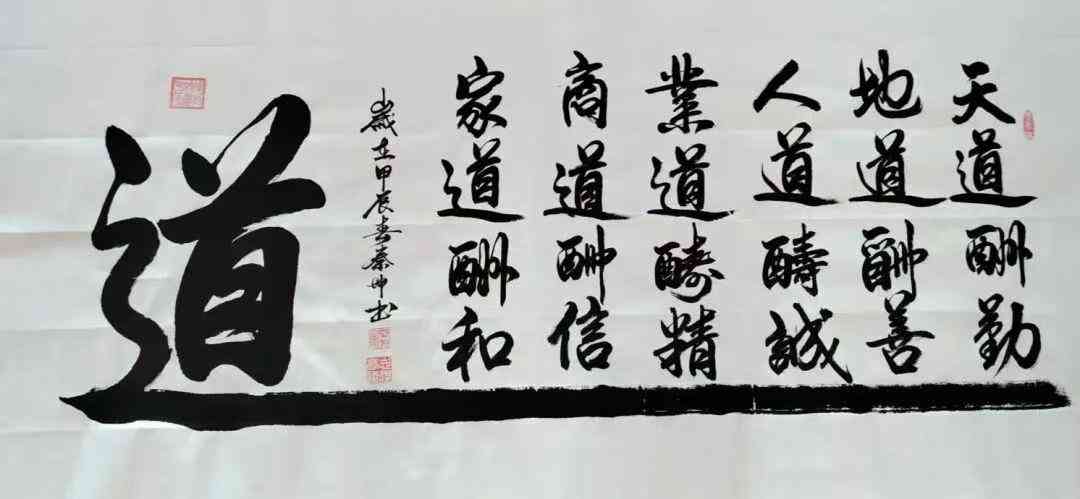 天道酬勤
地道酬善
人道酬誠
業道酬精
商道酬信
家道酬和
歲在甲辰春秦坤书
道